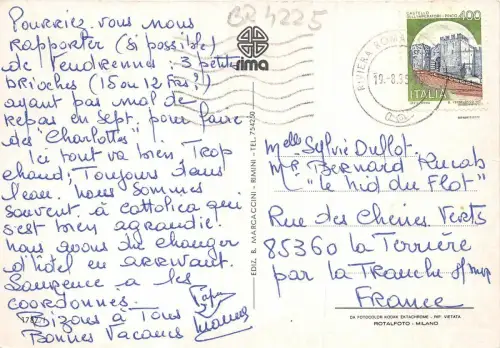 Pourriez-vous nous
rapporter (si possible)
de Vendrennes : 3 petites
brioches (15 ou 12 Frs?)
ayant pas mal de
repas en Sept. pour faire
des "Charlottes".
Ici tout va bien, Trop
chaud; Toujours dans
l'eau. Nous sommes
souvent à Cattolica qui
s'est bien agrandie.
Nous avons dû changer
d'hôtel en arrivant.
Laurence a les
coordonnés.
Bizous à Tous
Bonnes Vacances
Papa
Mamie
BR4225
rima
EDIZ. B. MARCACCINI - RIMINI - TEL.
400
ITALIA
19.-8.
Melle Sylvie Dullot.
Mr Bernard
"le nid du Flot"
Rue des Chênes Verts
85360 la Terrière
par la Tranche s/mer
France
DA FOTOCOLOR KODAK EKTACHROME - RIP. VIETATA
ROTALFOTO - MILANO